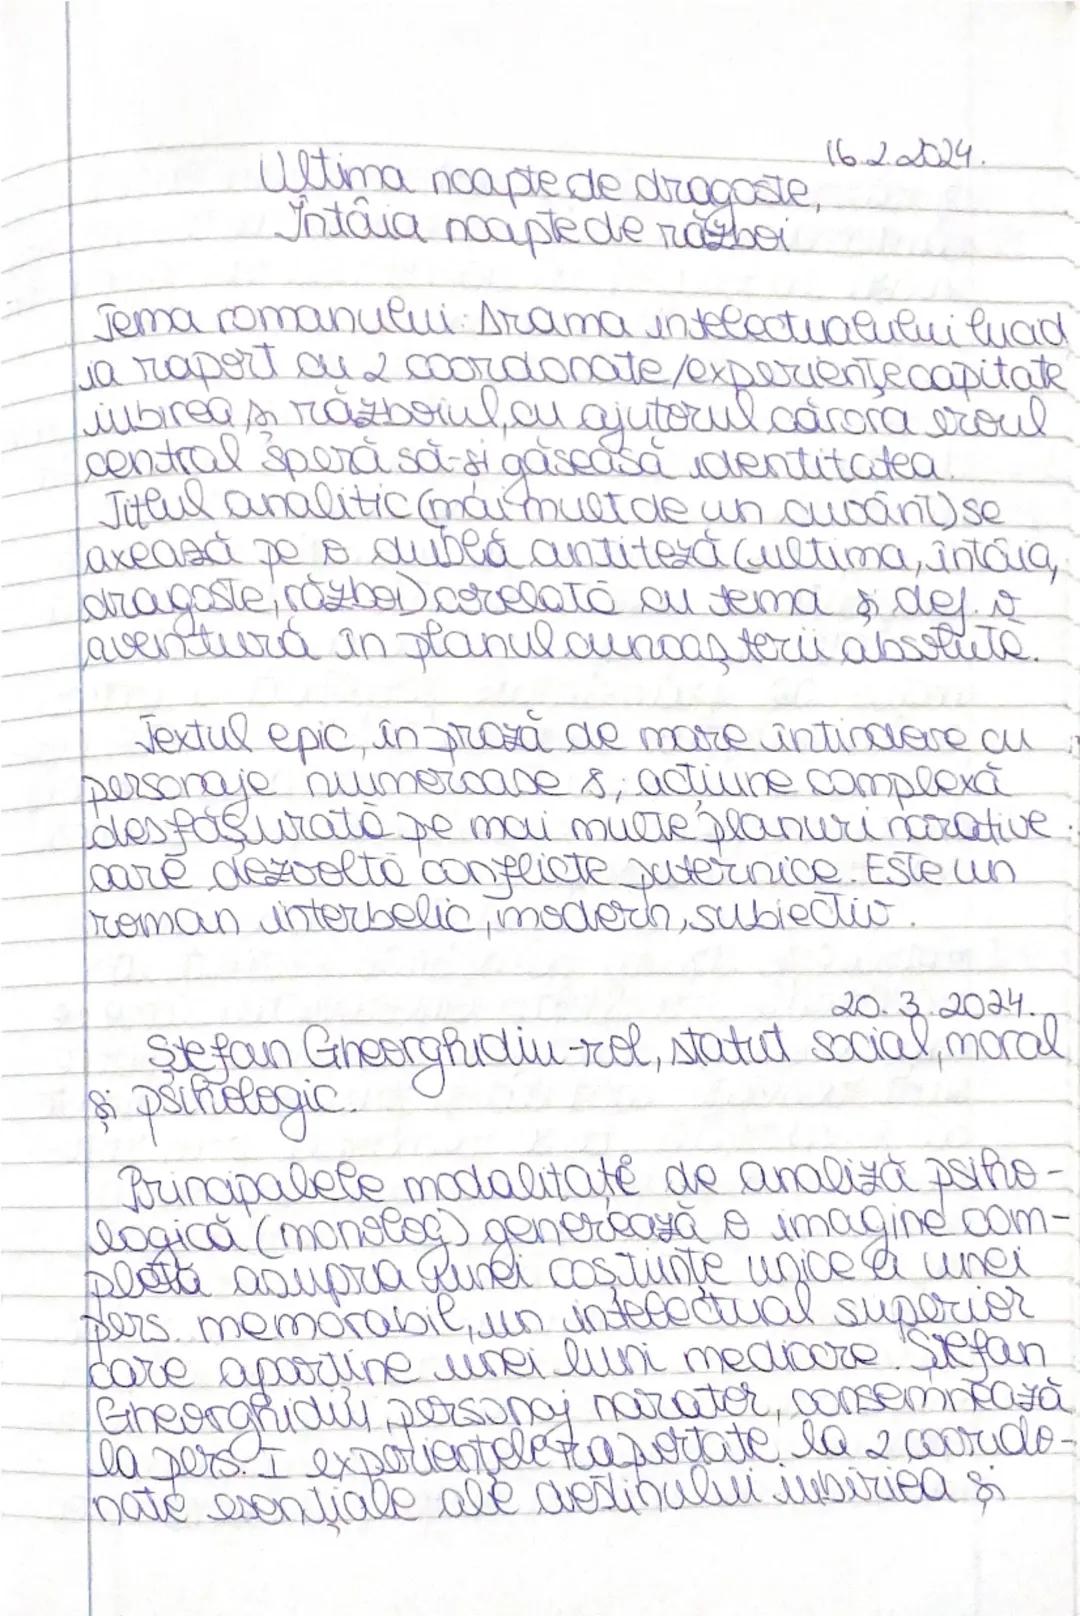 16.2.2024.
Ultima noapte de dragoste,
Întâia noapte de război
Tema romanului: Drama intelectualului lucid
ia raport cu 2 coordonate/experiențe capitate
iubirea și războiul, cu ajutorul cărora eroul
central speră să-și găsească identitatea.
Titlul analitic (mai mult de un cuvânt) se
axează pe o dublă antiteză (ultima, întâia,
dragoste, război) corelată cu tema și def. o
aventură în planul cunoașterii absolute.
Textul epic, în proză de mare întindere cu
personaje numeroase și acțiune complexă
desfășurată pe mai multe planuri narative
care dezvoltă conflicte puternice. Este un
roman interbelic, modern, subiectiv.
20.3.2024.
Ștefan Gheorghidiu - rol, statut social, moral
și psihologic.
Principalele modalitate de analiză psiho-
logică (monolog) generează o imagine com-
pletă asupra unei coștiințe unice a unei
pers. memorabil, un intelectual superior
care aparține unei lumi mediocre. Ștefan
Gheorghidiu, personaj narator, consemnează
la pers. I experiențele raportate la 2 coordo-
nate esențiale ale destinului iubirea și